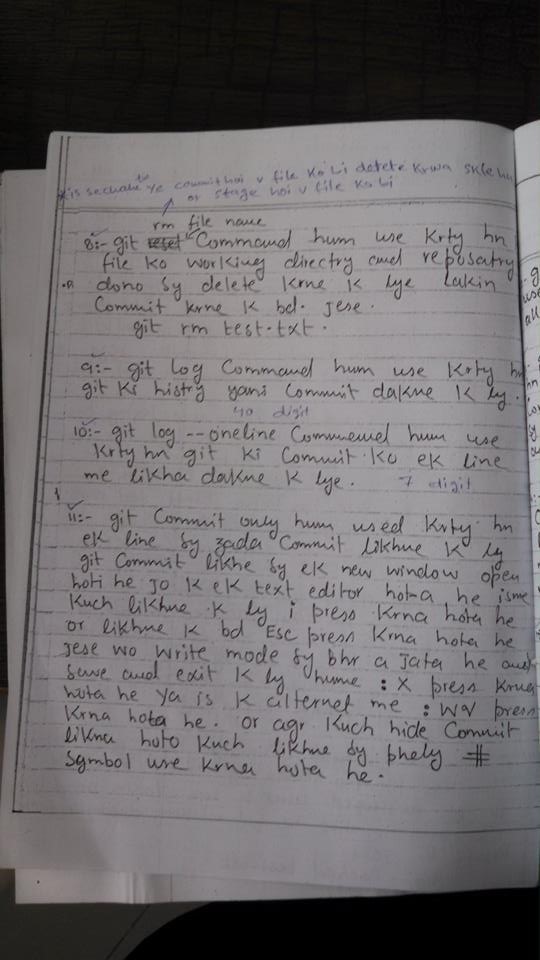 is se chahe to ye commit hoi v file ko bi delete krwa skte hn
or stage hoi v file ko bi
rm file name
8:- git reset Command hum use Krty hn
file ko working directry and reposatry
dono sy delete krne k lye lakin
Commit krne k bd. jese.
git rm test.txt.
9:- git log Command hum use Krty hn
git Ki histry yani Commit dakne K ly.
40 digit
10:- git log --oneline Commemd hum use
Krty hn git ki Commit ko ek line
me likha dakne k lye. 7 digit
11:- git Commit only hum used Krty hn
ek line sy zada Commit likhne K ly
git Commit likhe sy ek new window open
hoti he jo K ek text editor hota he isme
Kuch likhne K ly i press Krna hota he
or likhne K bd Esc press Krna hota he
jese wo write mode sy bhr a jata he and
Save and exit K ly hume :X press krna
huta he ya is K alternet me :WV press
Krna hota he. or agr Kuch hide Commit
likna hoto Kuch likhne sy phely #
Symbol use krna huta he.